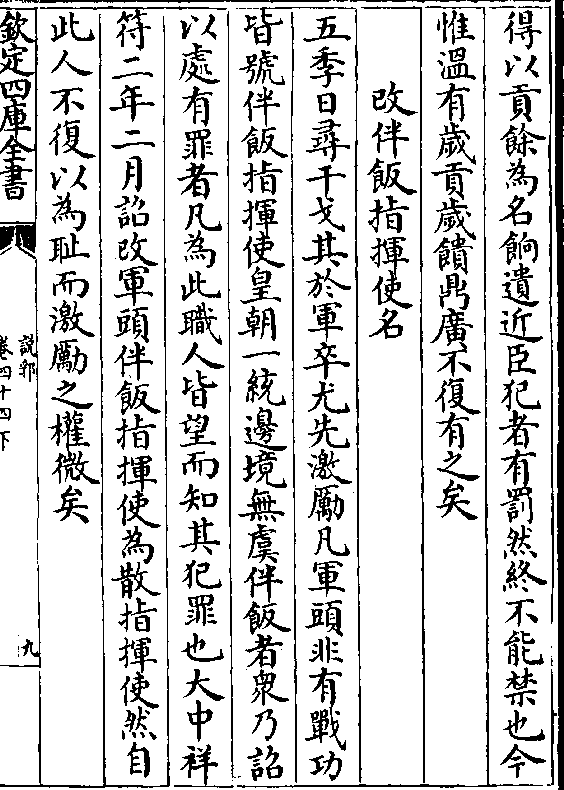 得以貢餘為名餉遺近臣犯者有罰然終不能禁也今
惟溫有歲貢歲饋鼎廣不復有之矣
改伴飯指揮使名
五季日尋干戈其於軍卒尤先激勵凡軍頭非有戰功
皆號伴飯指揮使皇朝一統邊境無虞伴飯者衆乃詔
以處有罪者凡為此職人皆望而知其犯罪也大中祥
符二年二月詔改軍頭伴飯指揮使為散指揮使然自
此人不復以為耻而激勵之權微矣
欽定四庫全書
說郛
卷四十四下
九